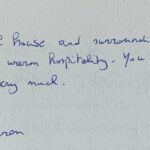 house and surroundi
warm hospitality. You
very much.